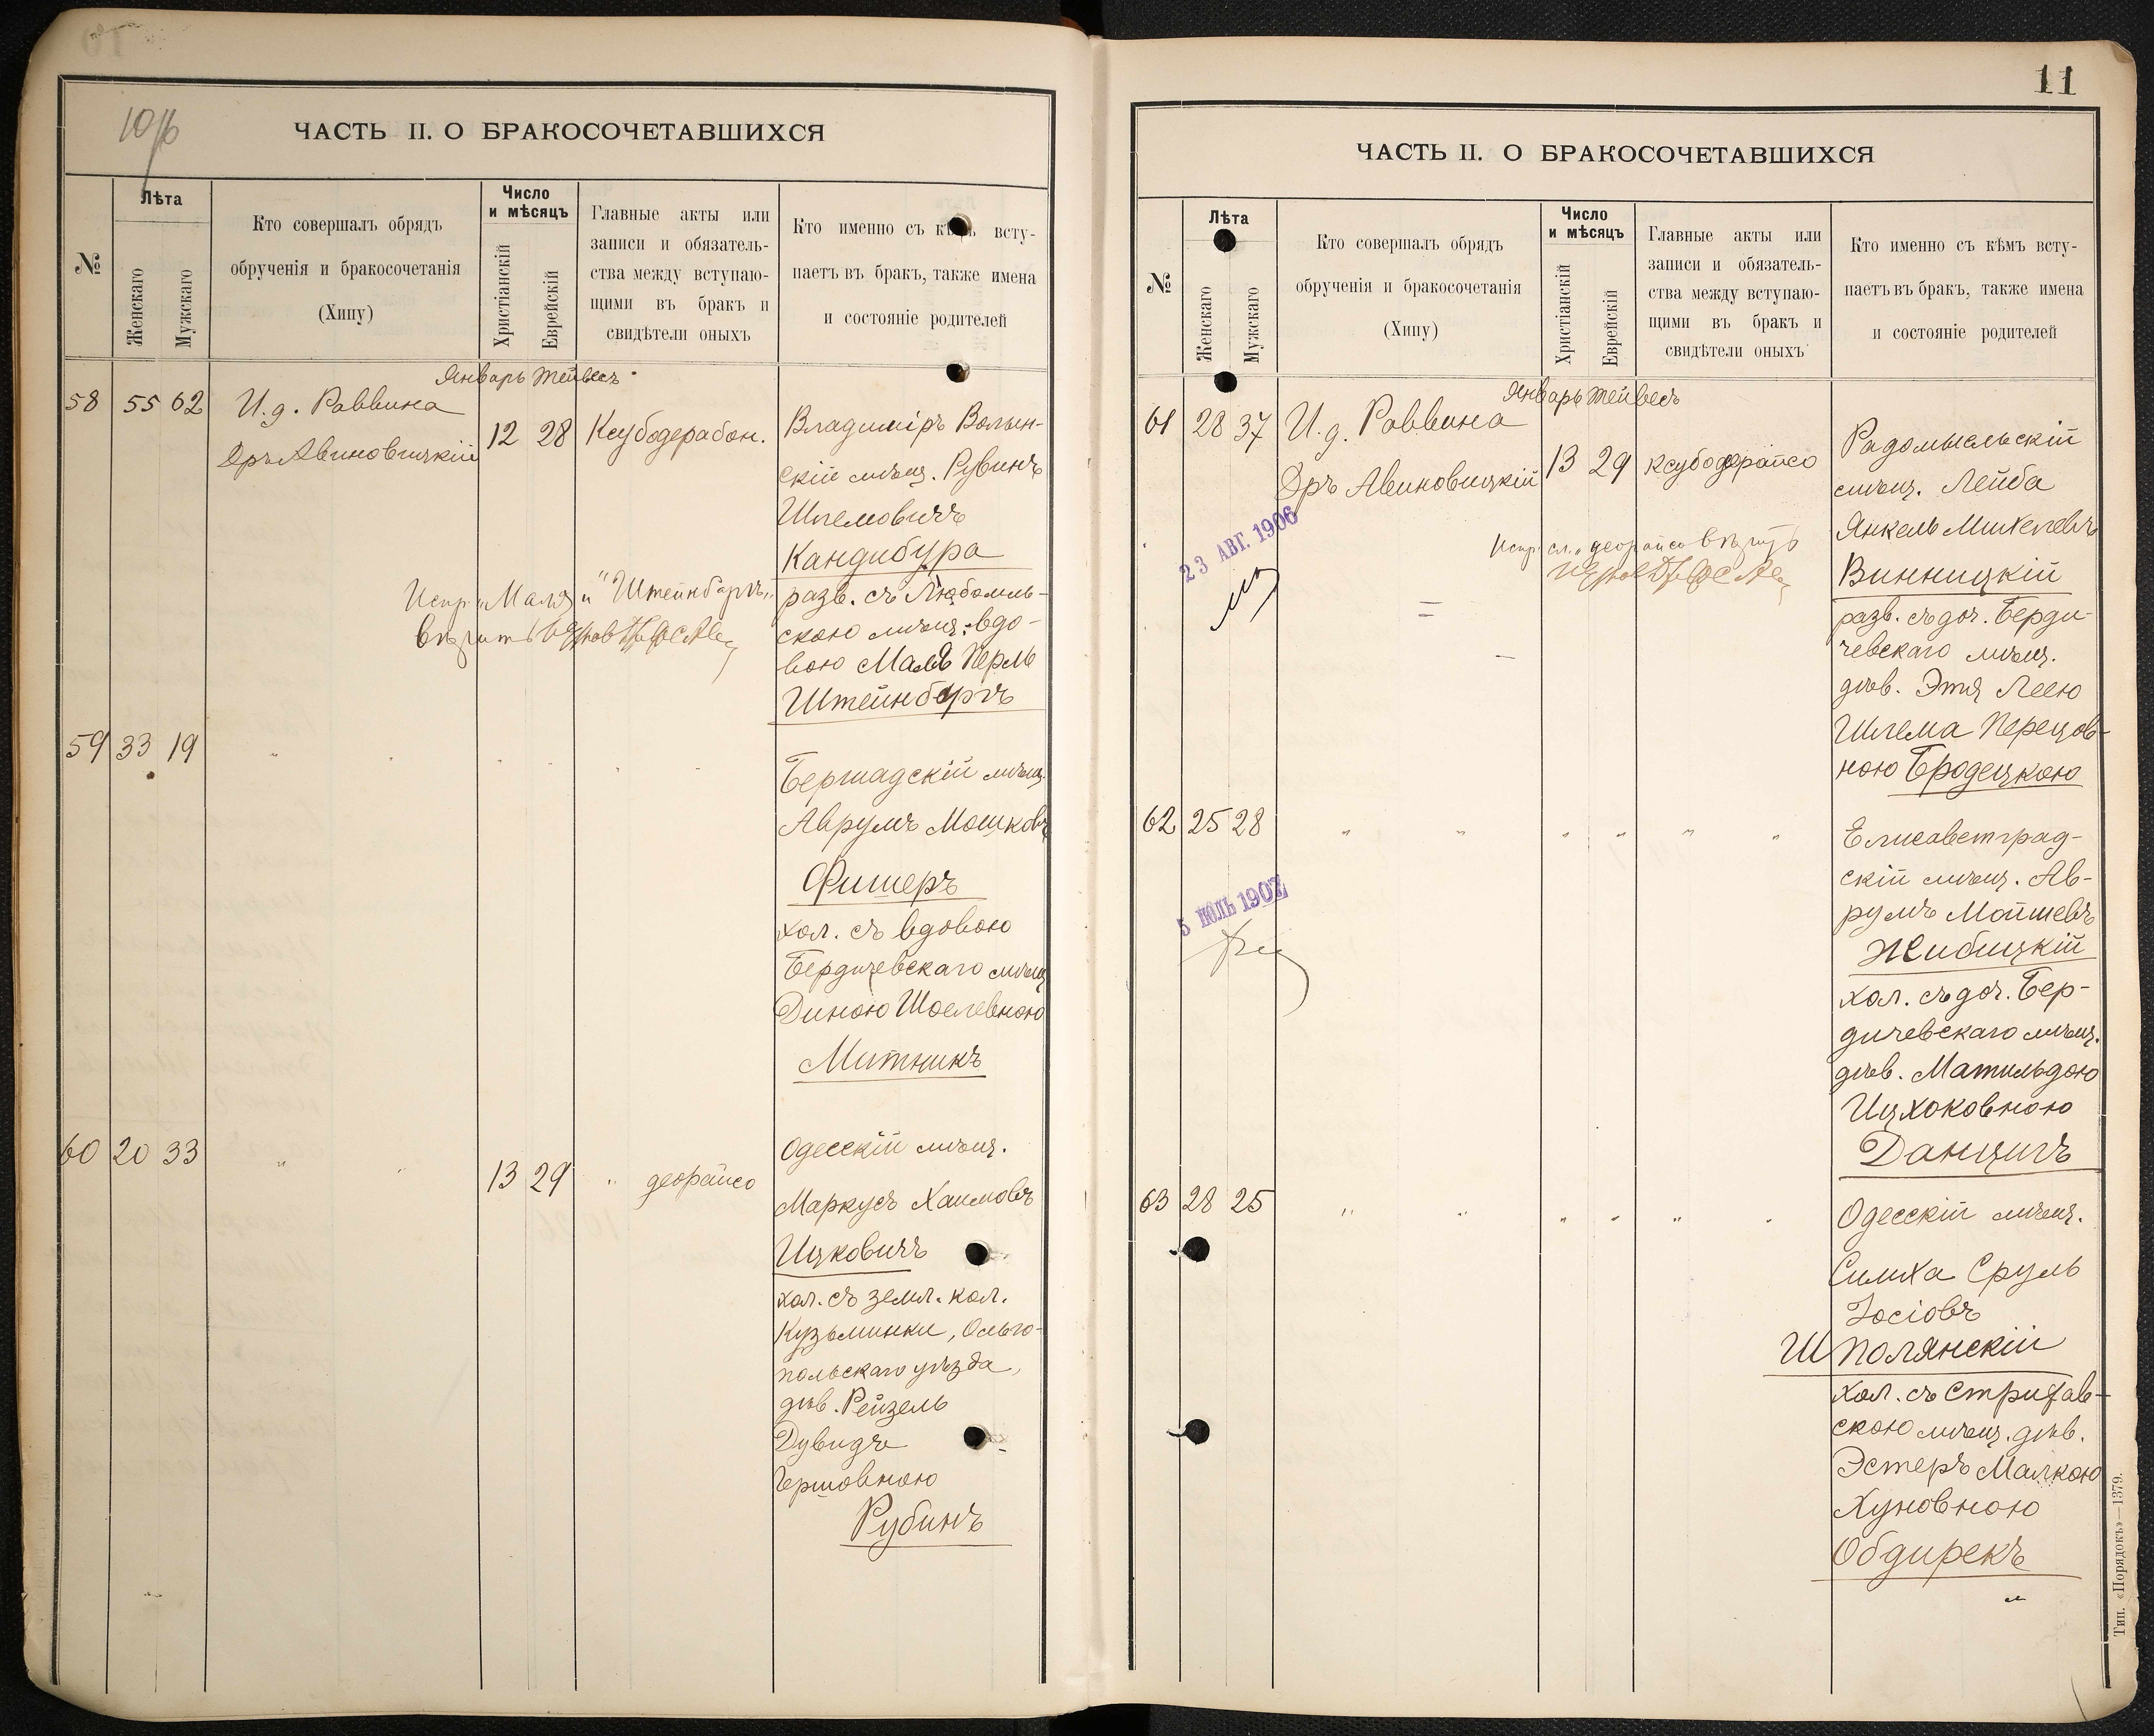 10/16
ЧАСТЬ II. О БРАКОСОЧЕТАВШИХСЯ
№
Лѣта
Женскаго
Мужскаго
Кто совершалъ обрядъ
обрученія и бракосочетанія
(Хипу)
Число
и мѣсяцъ
Христіанскій
Еврейскій
Главные акты или
записи и обязатель-
ства между вступаю-
щими въ бракъ и
свидѣтели оныхъ
Кто именно съ кѣмъ всту-
паетъ въ бракъ, также имена
и состояніе родителей
Январь Тейвесъ
58 55 62 И. д. Раввина
Дръ Авиновицкій
12 28 Ксубодерабон.
Владиміръ Волын-
скій мѣщ. Рувинъ
Шлемовичъ
Кандибура
разв. съ Любомль-
скою мѣщ. вдо-
вою Маля Перль
Штейнбергъ
Испр. "Маля" и "Штейнбергъ"
вѣрить
59 33 19 " " " " " "
Бершадскій мѣщ.
Аврумъ Мошковъ
Фишеръ
хол. съ вдовою
Бердичевскаго мѣщ.
Диною Шоелевною
Митникъ
60 20 33 " " 13 29 " деорайсо
Одесскій мѣщ.
Маркусъ Хаимовъ
Ицковичъ
хол. съ земл. кол.
Кузьминки, Ольго-
польскаго уѣзда,
дѣв. Рейзель
Дувидъ
Гершовною
Рубинъ
11
ЧАСТЬ II. О БРАКОСОЧЕТАВШИХСЯ
№
Лѣта
Женскаго
Мужскаго
Кто совершалъ обрядъ
обрученія и бракосочетанія
(Хипу)
Число
и мѣсяцъ
Христіанскій
Еврейскій
Главные акты или
записи и обязатель-
ства между вступаю-
щими въ бракъ и
свидѣтели оныхъ
Кто именно съ кѣмъ всту-
паетъ въ бракъ, также имена
и состояніе родителей
Январь Тейвесъ
61 28 37 И. д. Раввина
Дръ Авиновицкій
13 29 ксубодерайсо
Радомысльскій
мѣщ. Лейба
Янкель Михелевъ
Винницкій
разв. съ доч. Берди-
чевскаго мѣщ.
дѣв. Этя Леею
Шлема Перецов-
ною Бродецкою
23 АВГ. 1906
Испр. сл. "деорайсо" вѣрить
62 25 28 " " " " " "
Елисаветград-
скій мѣщ. Ав-
румъ Мойшевъ
Жибицкій
хол. съ доч. Бер-
дичевскаго мѣщ.
дѣв. Матильдою
Ицхоковною
Данцигъ
5 ІЮЛЬ 1907
63 28 25 " " " " " "
Одесскій мѣщ.
Симха Сруль
Іосіовъ
Шполянскій
хол. съ Стрижав-
скою мѣщ. дѣв.
Эстеръ Малкою
Хуновною
Обдирекъ
Тип. «Порядокъ»—1379.